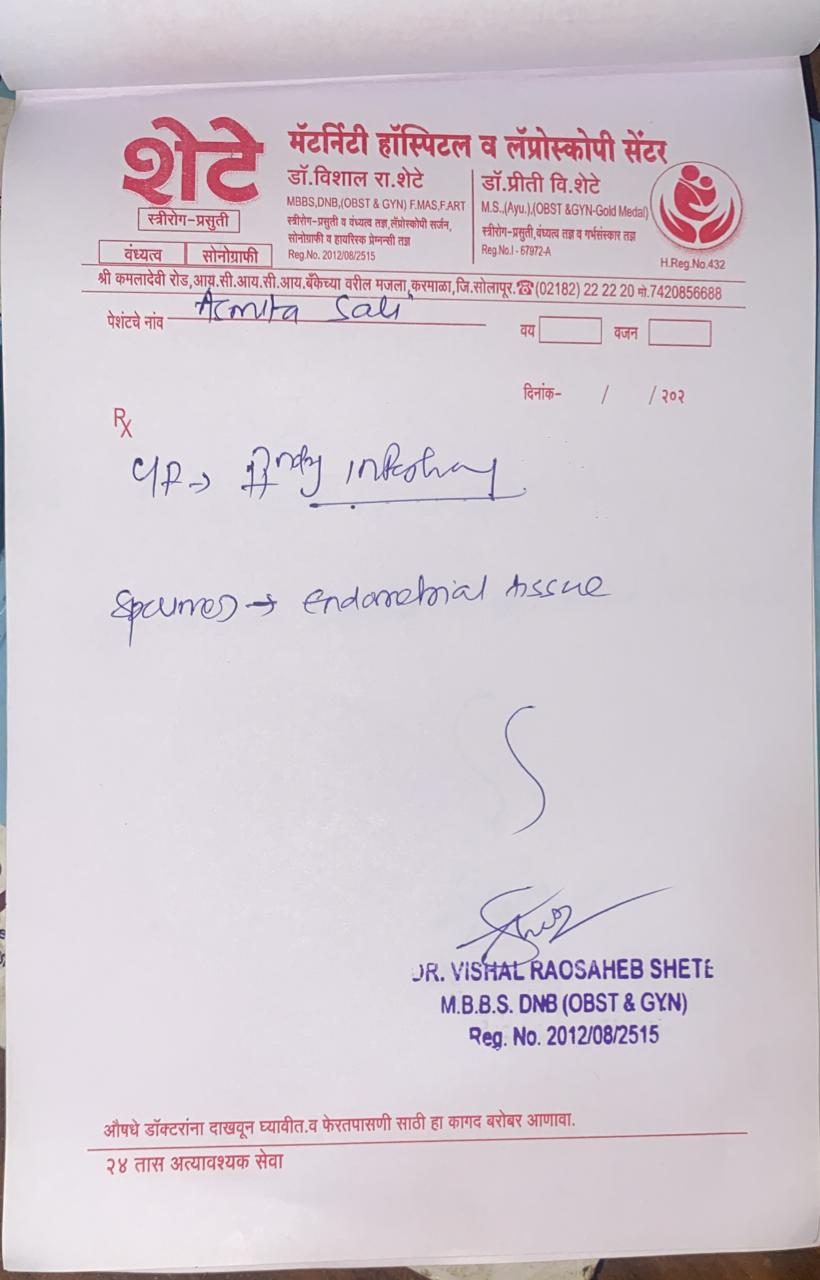 शेटे
स्त्रीरोग-प्रसुती
वंध्यत्व सोनोग्राफी
मॅटर्निटी हॉस्पिटल व लॅप्रोस्कोपी सेंटर
डॉ.विशाल रा.शेटे
MBBS,DNB,(OBST & GYN) F.MAS,F.ART
स्त्रीरोग-प्रसुती व वंध्यत्व तज्ञ,लॅप्रोस्कोपी सर्जन,
सोनोग्राफी व हायरिस्क प्रेग्नन्सी तज्ञ
Reg.No. 2012/08/2515
डॉ.प्रीती वि.शेटे
M.S.,(Ayu.),(OBST &GYN-Gold Medal)
स्त्रीरोग-प्रसुती,वंध्यत्व तज्ञ व गर्भसंस्कार तज्ञ
Reg.No.I - 67972-A
H.Reg.No.432
श्री कमलादेवी रोड,आय.सी.आय.सी.आय.बँकेच्या वरील मजला,करमाळा,जि.सोलापूर.☎(02182) 22 22 20 मो.7420856688
पेशंटचे नांव Asmita Sali
वय वजन
दिनांक- / /२०२
Rx
endometrial tissue
DR. VISHAL RAOSAHEB SHETE
M.B.B.S. DNB (OBST & GYN)
Reg. No. 2012/08/2515
औषधे डॉक्टरांना दाखवून घ्यावीत.व फेरतपासणी साठी हा कागद बरोबर आणावा.
२४ तास अत्यावश्यक सेवा